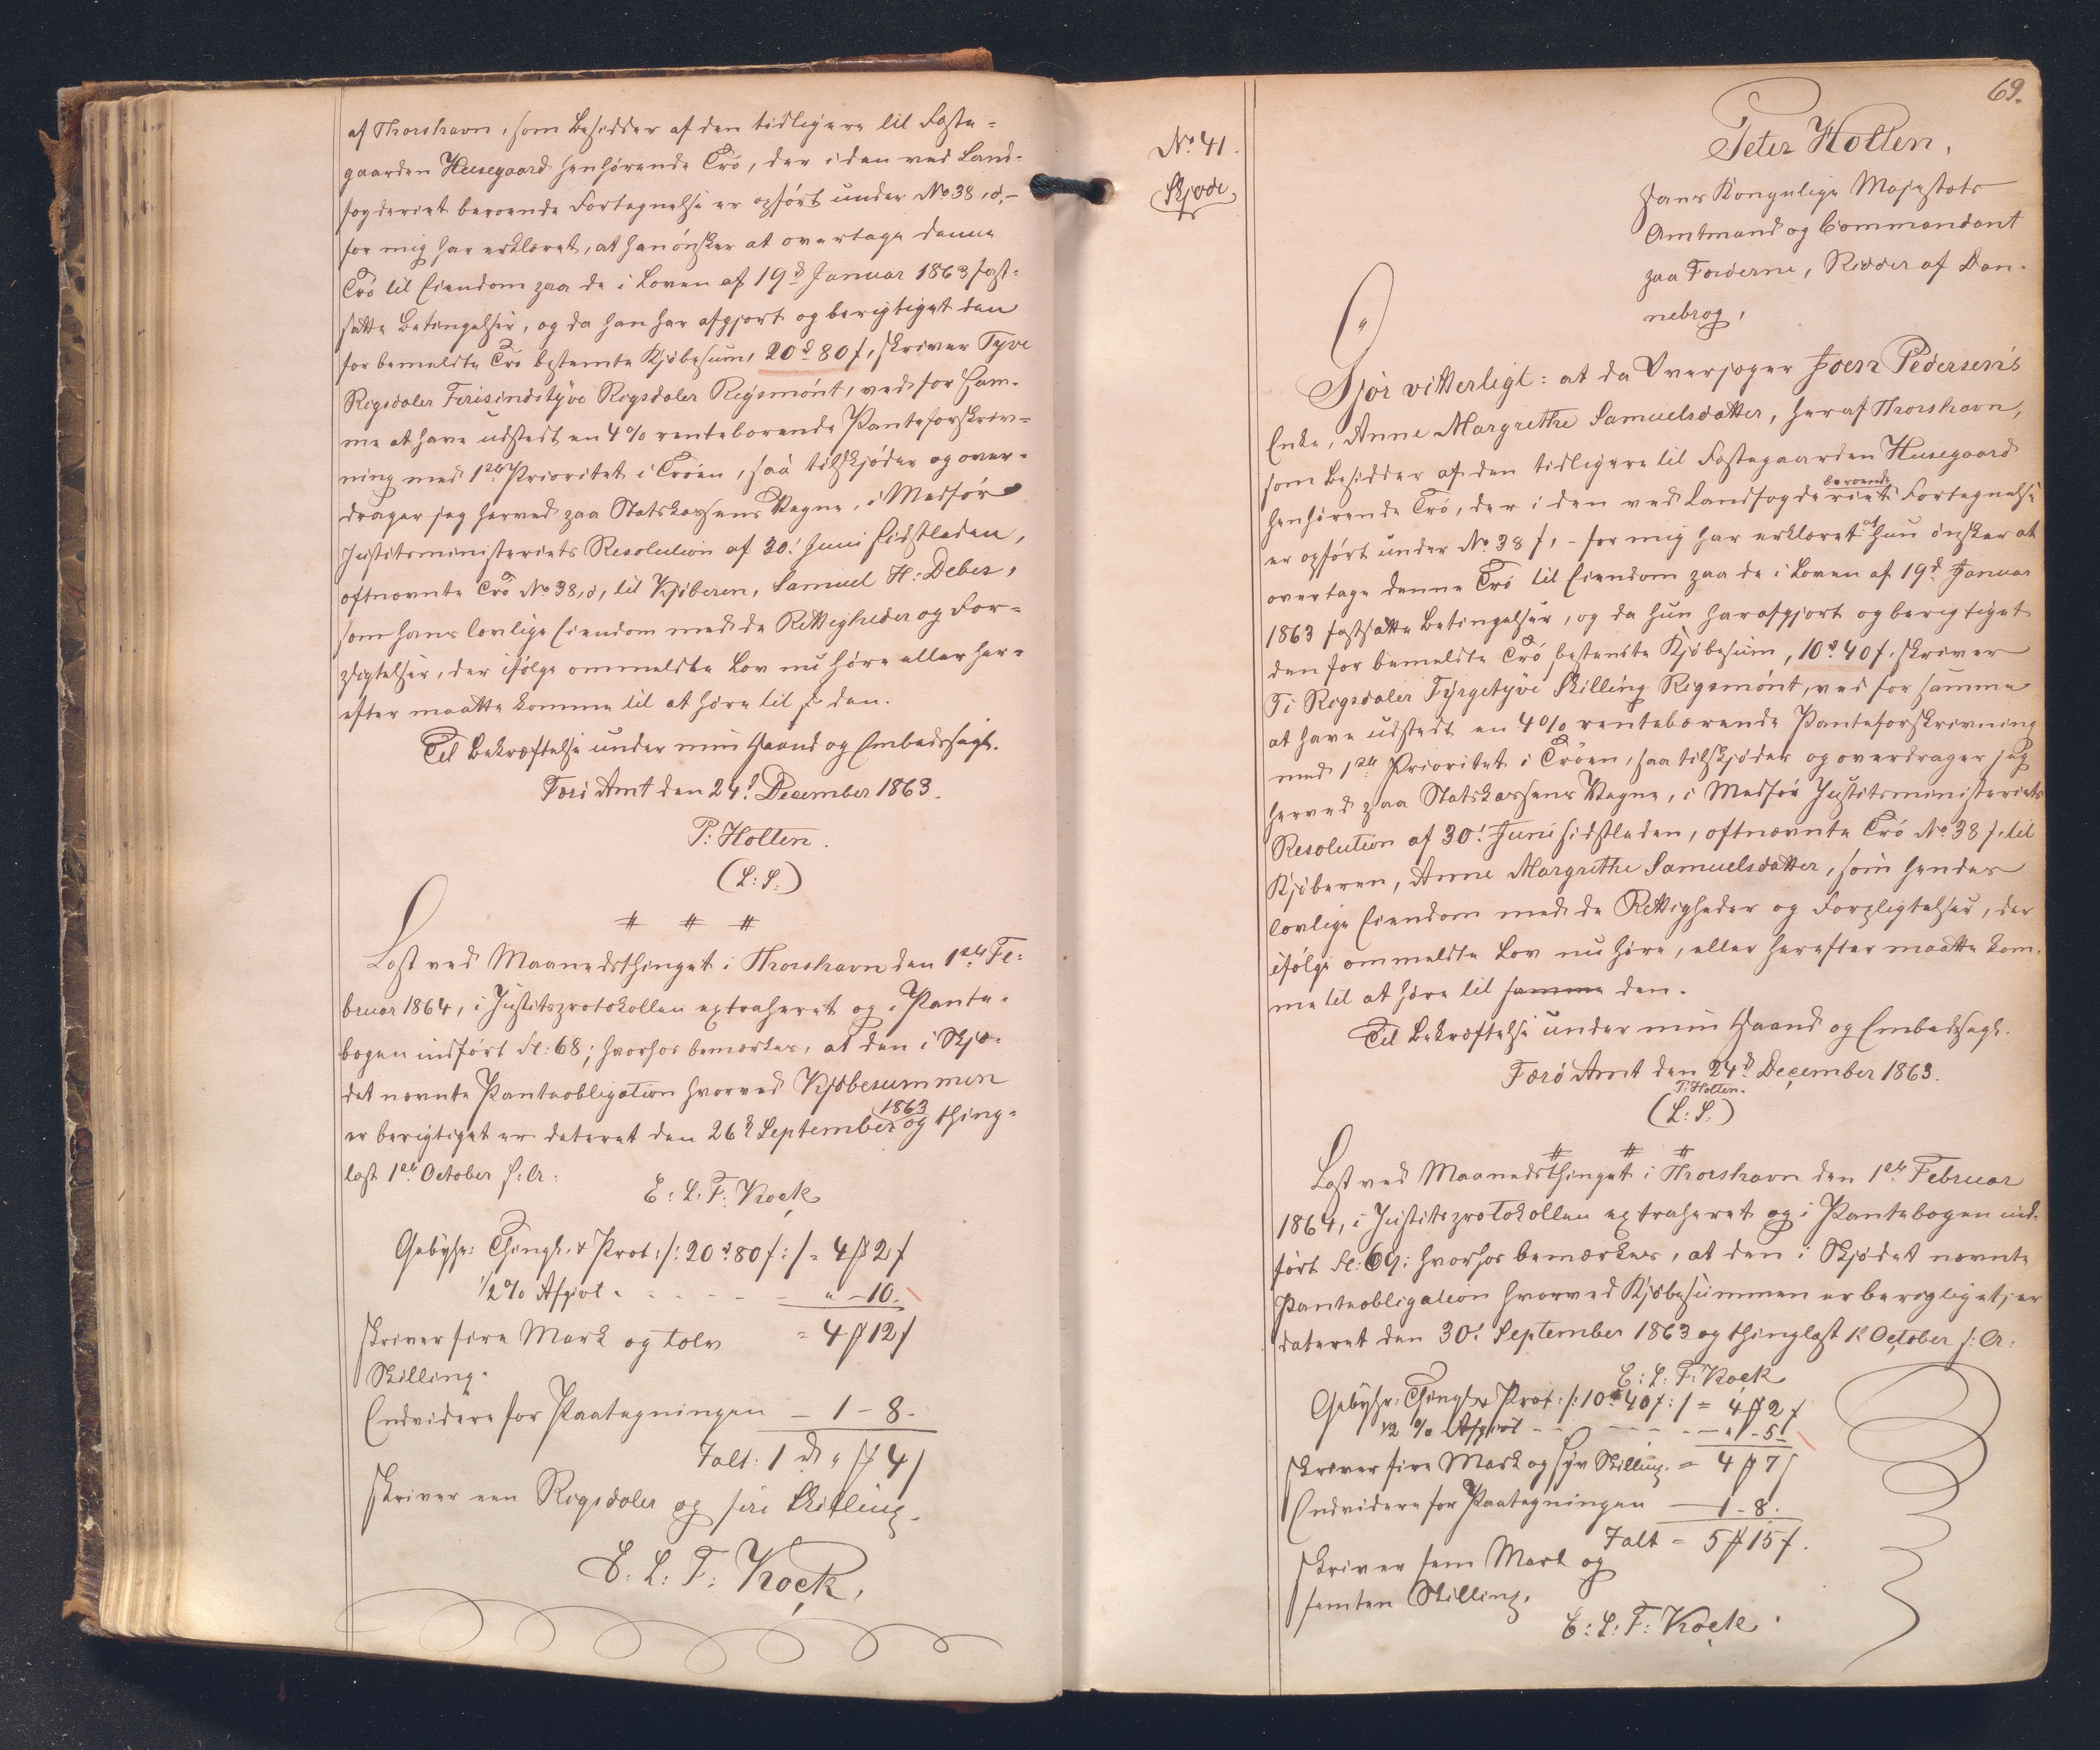 af Thorshavn, som Besidder af den tidligere til Fæste-
gaarden Husegaard henhørende Trø, der i den ved Land-
fogderiet beroende Fortegnelse er opført under No 38, d,-
for mig har erklæret, at han ønsker at overtage denne
Trø til Eiendom paa de i Loven af 19d Januar 1863 fast-
satte Betingelser, og da han har afgjort og berigtiget den
for bemeldte Trø bestemte Kjøbesum, 20d 80 s, skriver Tyve
Rigsdaler Firisindstyve Rigsdaler Rigsmønt, ved for sam-
me at have udstedt en 4% rentebærende Panteforskriv-
ning med 1ste Prioritet i Trøen, saa tilskjøder og over-
drager jeg herved paa Statskassens Vegne, i Medfør
Justitsministeriets Resolution af 30' Juni sidstleden,
oftnævnte Trø No 38, d, til Kjøberen, Samuel H: Debes,
som hans lovlige Eiendom med de Rettigheder og For-
pligtelser, der ifølge ommeldte Lov nu høre eller her-
efter maatte komme til at høre til den.
Til Bekræftelse under min Haand og Embedssegl.
Færø Amt den 24d December 1863.
P: Holten.
(L: S:)
# # #
Læst ved Maanedsthinget i Thorshavn den 1ste Fe-
bruar 1864, i Justitsprotokollen extraheret og i Pante-
bogen indført Fl: 68; hvorhos bemærkes, at den i Skjø-
det nævnte Panteobligation hvorved Kjøbesummen
er berigtiget er dateret den 26d September 1863 og thing-
læst 1ste October s: A:
E: L: F: Kock
Gebyhr: Thingl. & Prot: /: 20d 80 s :/ = 4 # 2 s
1/2 % Afgivt - - - - - " - 10.
skriver fire Mark og tolv = 4 # 12 s
Skilling.
Endvidere for Paategningen - 1 - 8.
Ialt: 1 d " # 4 s
skriver een Rigsdaler og fire Skilling.
E. L: F: Kock.
69.
No 41.
Skjøde
Peter Holten,
Hans Kongelige Majestæts
Amtmand og Commandant
paa Færøerne, Ridder af Dan-
nebrog,
Gjør vitterligt: at da Overjæger Joen Pedersens
Enke, Anne Margrethe Samuelsdatter, her af Thorshavn,
som Besidder af den tidligere til Fæstegaarden Husegaard
henhørende Trø, der i den ved Landfogderiet beroende Fortegnelse
er opført under No 38 f, - for mig har erklæret at hun ønsker at
overtage denne Trø til Eiendom paa de i Loven af 19d Januar
1863 fastsatte Betingelser, og da hun har afgjort og berigtiget
den for bemeldte Trø bestemte Kjøbesum, 10d 40 s. skriver
Ti Rigsdaler Fyrgetyve Skilling Rigsmønt, ved for samme
at have udstedt en 4% rentebærende Panteforskrivning
med 1ste Prioritet i Trøen, saa tilskjøder og overdrager jeg
herved paa Statskassens Vegne, i Medfør Justitsministeriets
Resolution af 30' Juni sidstleden, oftnævnte Trø No 38 f. til
Kjøberen, Anne Margrethe Samuelsdatter, som hendes
lovlige Eiendom med de Rettigheder og Forpligtelser, der
ifølge ommeldte Lov nu høre, eller herefter maatte kom-
me til at høre til samme den.
Til Bekræftelse under min Haand og Embedssegl.
Færø Amt den 24d December 1863.
P: Holten.
(L: S:)
# # #
Læst ved Maanedsthinget i Thorshavn den 1ste Februar
1864, i Justitsprotokollen extraheret og i Pantebogen ind-
ført Fl: 69: hvorhos bemærkes, at den i Skjødet nævnte
Panteobligation hvorved Kjøbesummen er berigtiget, er
dateret den 30' September 1863 og thinglæst 1' October s: A:
E: L: F: Kock
Gebyhr: Thingl. & Prot: /: 10d 40 s :/ = 4 # 2 s
1/2 % Afgivt - - - - - " - 5 -
skriver fire Mark og syv Skilling. = 4 # 7 s
Endvidere for Paategningen - 1 - 8.
Ialt = 5 # 15 s.
skriver fem Mark og
femten Skilling.
E: L: F: Kock.